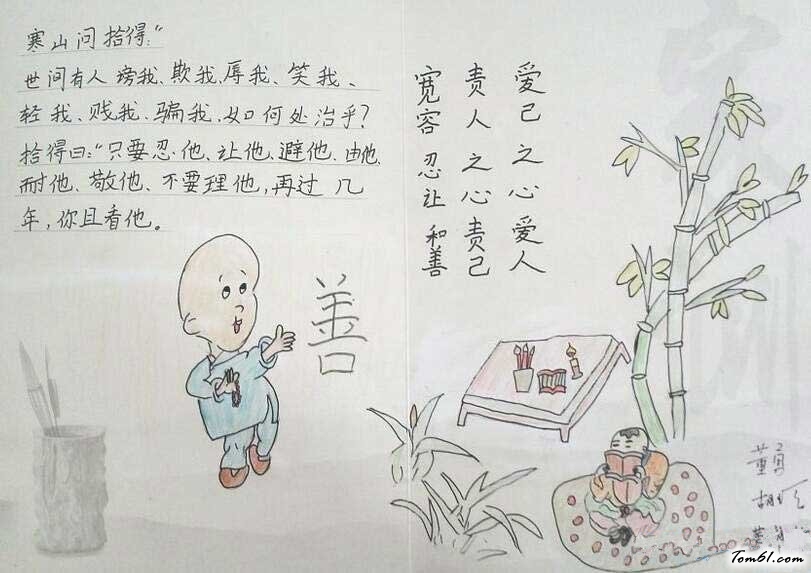 寒山问拾得:"
世间有人谤我、欺我、辱我、笑我、
轻我、贱我、骗我,如何处治乎?
拾得曰:"只要忍他、让他、避他、由他、
耐他、敬他、不要理他,再过几
年,你且看他。
善
爱己之心爱人
责人之心责己
宽容忍让和善
家训
董勇
Tom61.com